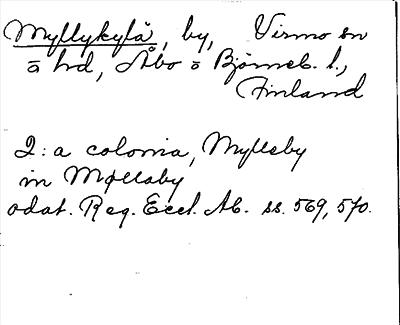 Myllykylä, by, Virmo sn
o hd, Åbo o Björneb. l.,
Finland
2: a colonia, Mylleby
in Møllaby
odat. Reg. Eccl. Ab. ss. 569, 570.